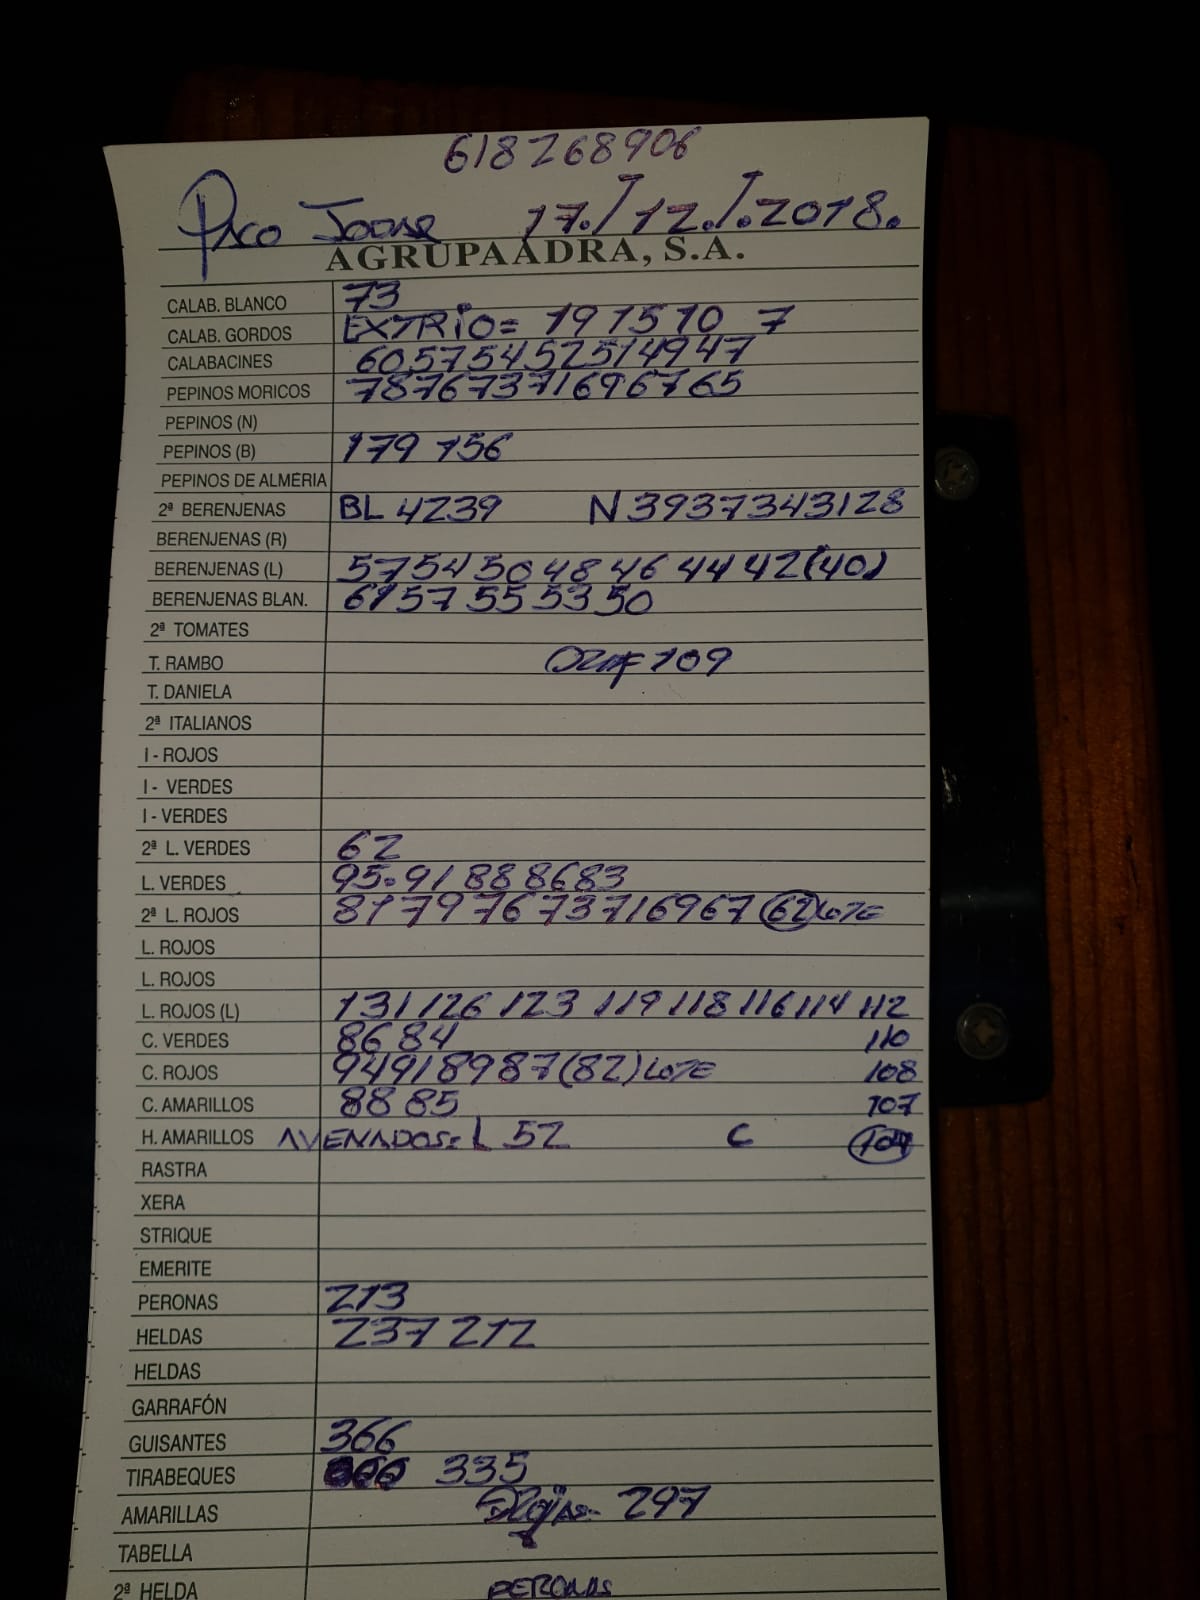 618268906
Paco 17./12./.2018.
AGRUPAADRA, S.A.
CALAB. BLANCO 73
CALAB. GORDOS EXTRIO= 19 15 10 7
CALABACINES 60 57 54 52 51 49 47
PEPINOS MORICOS 78 76 73 71 69 67 65
PEPINOS (N)
PEPINOS (B) 179 156
PEPINOS DE ALMERIA
2ª BERENJENAS BL 42 39 N 39 37 34 31 28
BERENJENAS (R)
BERENJENAS (L) 57 54 50 48 46 44 42 (40)
BERENJENAS BLAN. 61 57 55 53 50
2ª TOMATES
T. RAMBO 109
T. DANIELA
2ª ITALIANOS
I - ROJOS
I - VERDES
I - VERDES
2ª L. VERDES 62
L. VERDES 95.91 88 86 83
2ª L. ROJOS 81 79 76 73 71 69 67 62 LOTE
L. ROJOS
L. ROJOS
L. ROJOS (L) 131 126 123 119 118 116 114 112
C. VERDES 86 84 110
C. ROJOS 94 91 89 87 (82) LOTE 108
C. AMARILLOS 88 85 107
H. AMARILLOS AVENADOS= L 52 C 104
RASTRA
XERA
STRIQUE
EMERITE
PERONAS 213
HELDAS 237 212
HELDAS
GARRAFÓN
GUISANTES 366
TIRABEQUES 335
AMARILLAS 297
TABELLA
2ª HELDA PERONAS